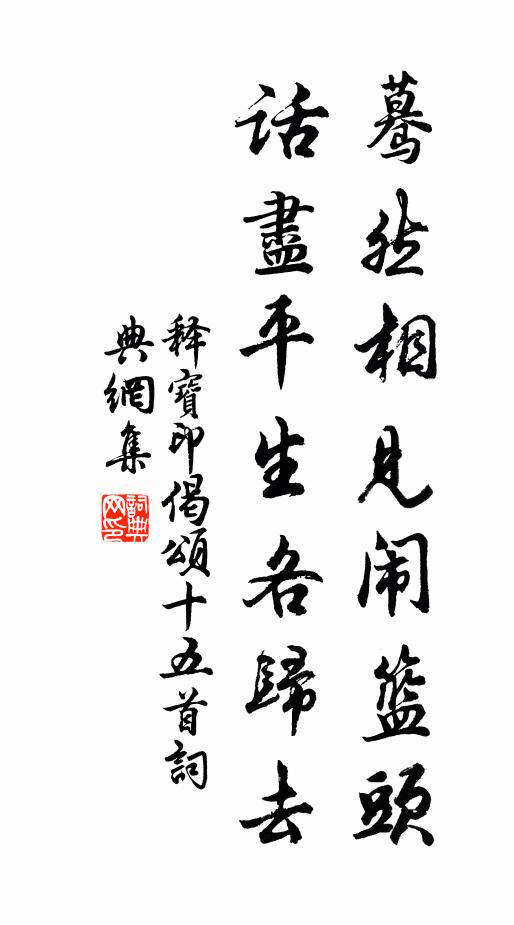 驀然相見闹籃頭
話盡平生各歸去
释寶印偈頌十五首詞
典網集
詞典
网印